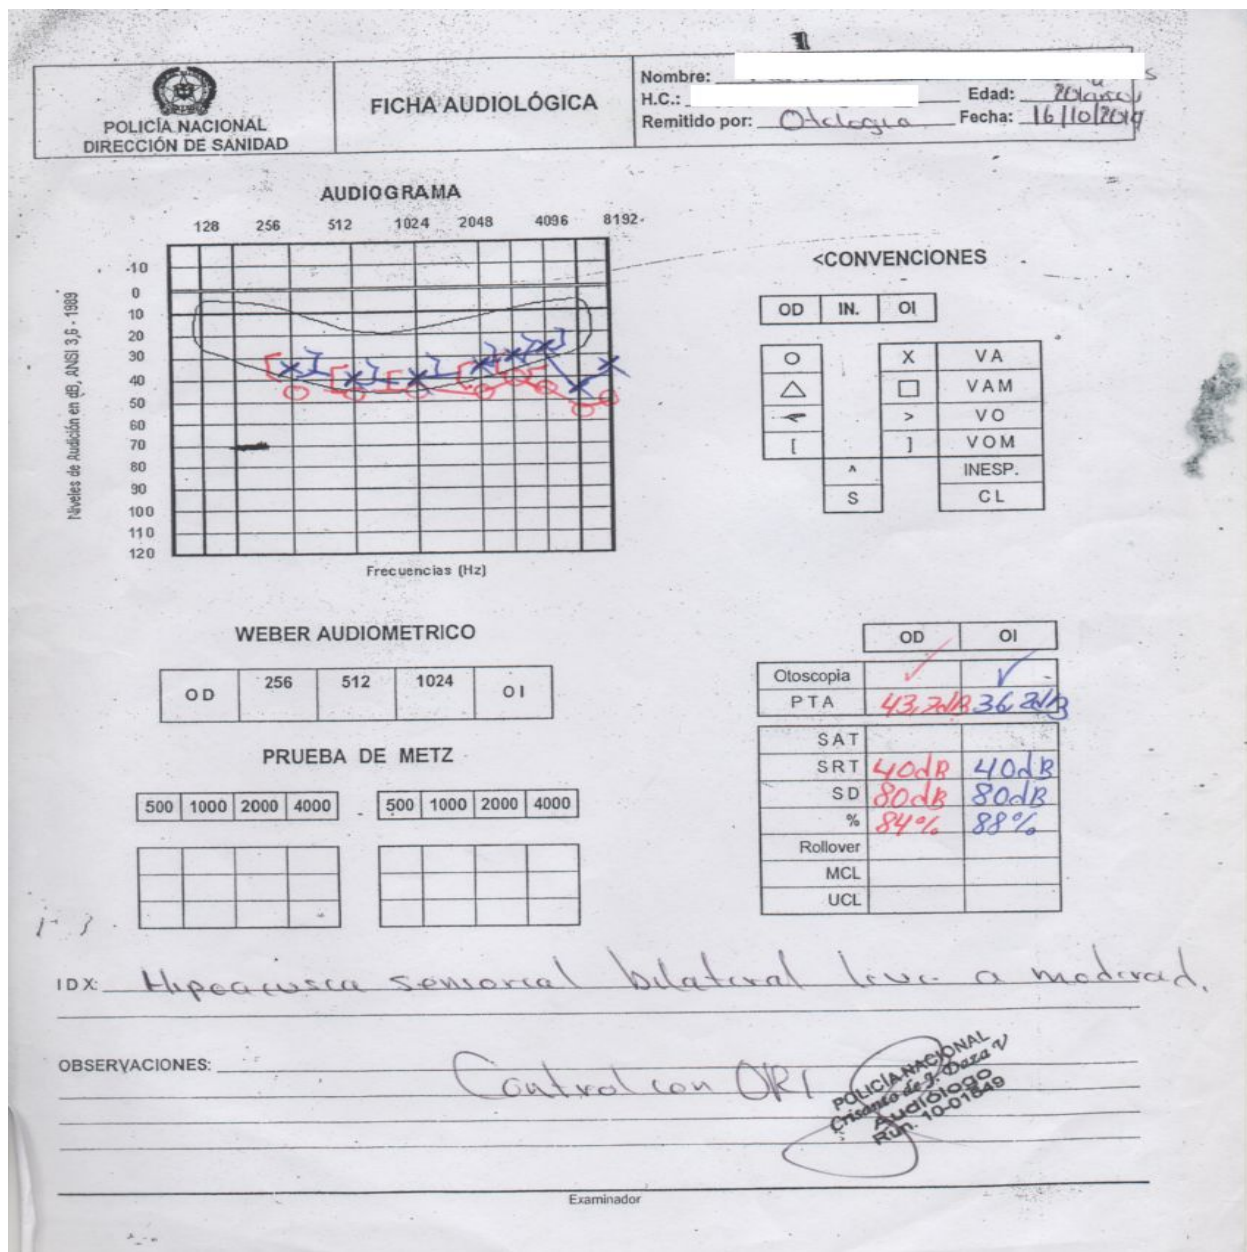 POLICÍA NACIONAL
DIRECCIÓN DE SANIDAD
FICHA AUDIOLÓGICA
Nombre:
H.C.: Edad:
Remitido por: Otologia Fecha: 16/10/2019
AUDIOGRAMA
128 256 512 1024 2048 4096 8192
Niveles de Audición en dB, ANSI 3,6 - 1989
-10
0
10
20
30
40
50
60
70
80
90
100
110
120
Frecuencias (Hz)
<CONVENCIONES
OD IN. OI
O X VA
△ □ VAM
> VO
[ ] VOM
^ INESP.
S CL
WEBER AUDIOMETRICO
OD 256 512 1024 OI
PRUEBA DE METZ
500 1000 2000 4000 500 1000 2000 4000
OD OI
Otoscopia ✓ ✓
PTA 43,2dB 36,2dB
SAT
SRT 40dB 40dB
SD 80dB 80dB
% 84% 88%
Rollover
MCL
UCL
IDX: Hipoacusia sensorial bilateral leve a moderad.
OBSERVACIONES: Control con ORL
POLICÍA NACIONAL
Daza V
Audiólogo
Run. 10-01849
Examinador